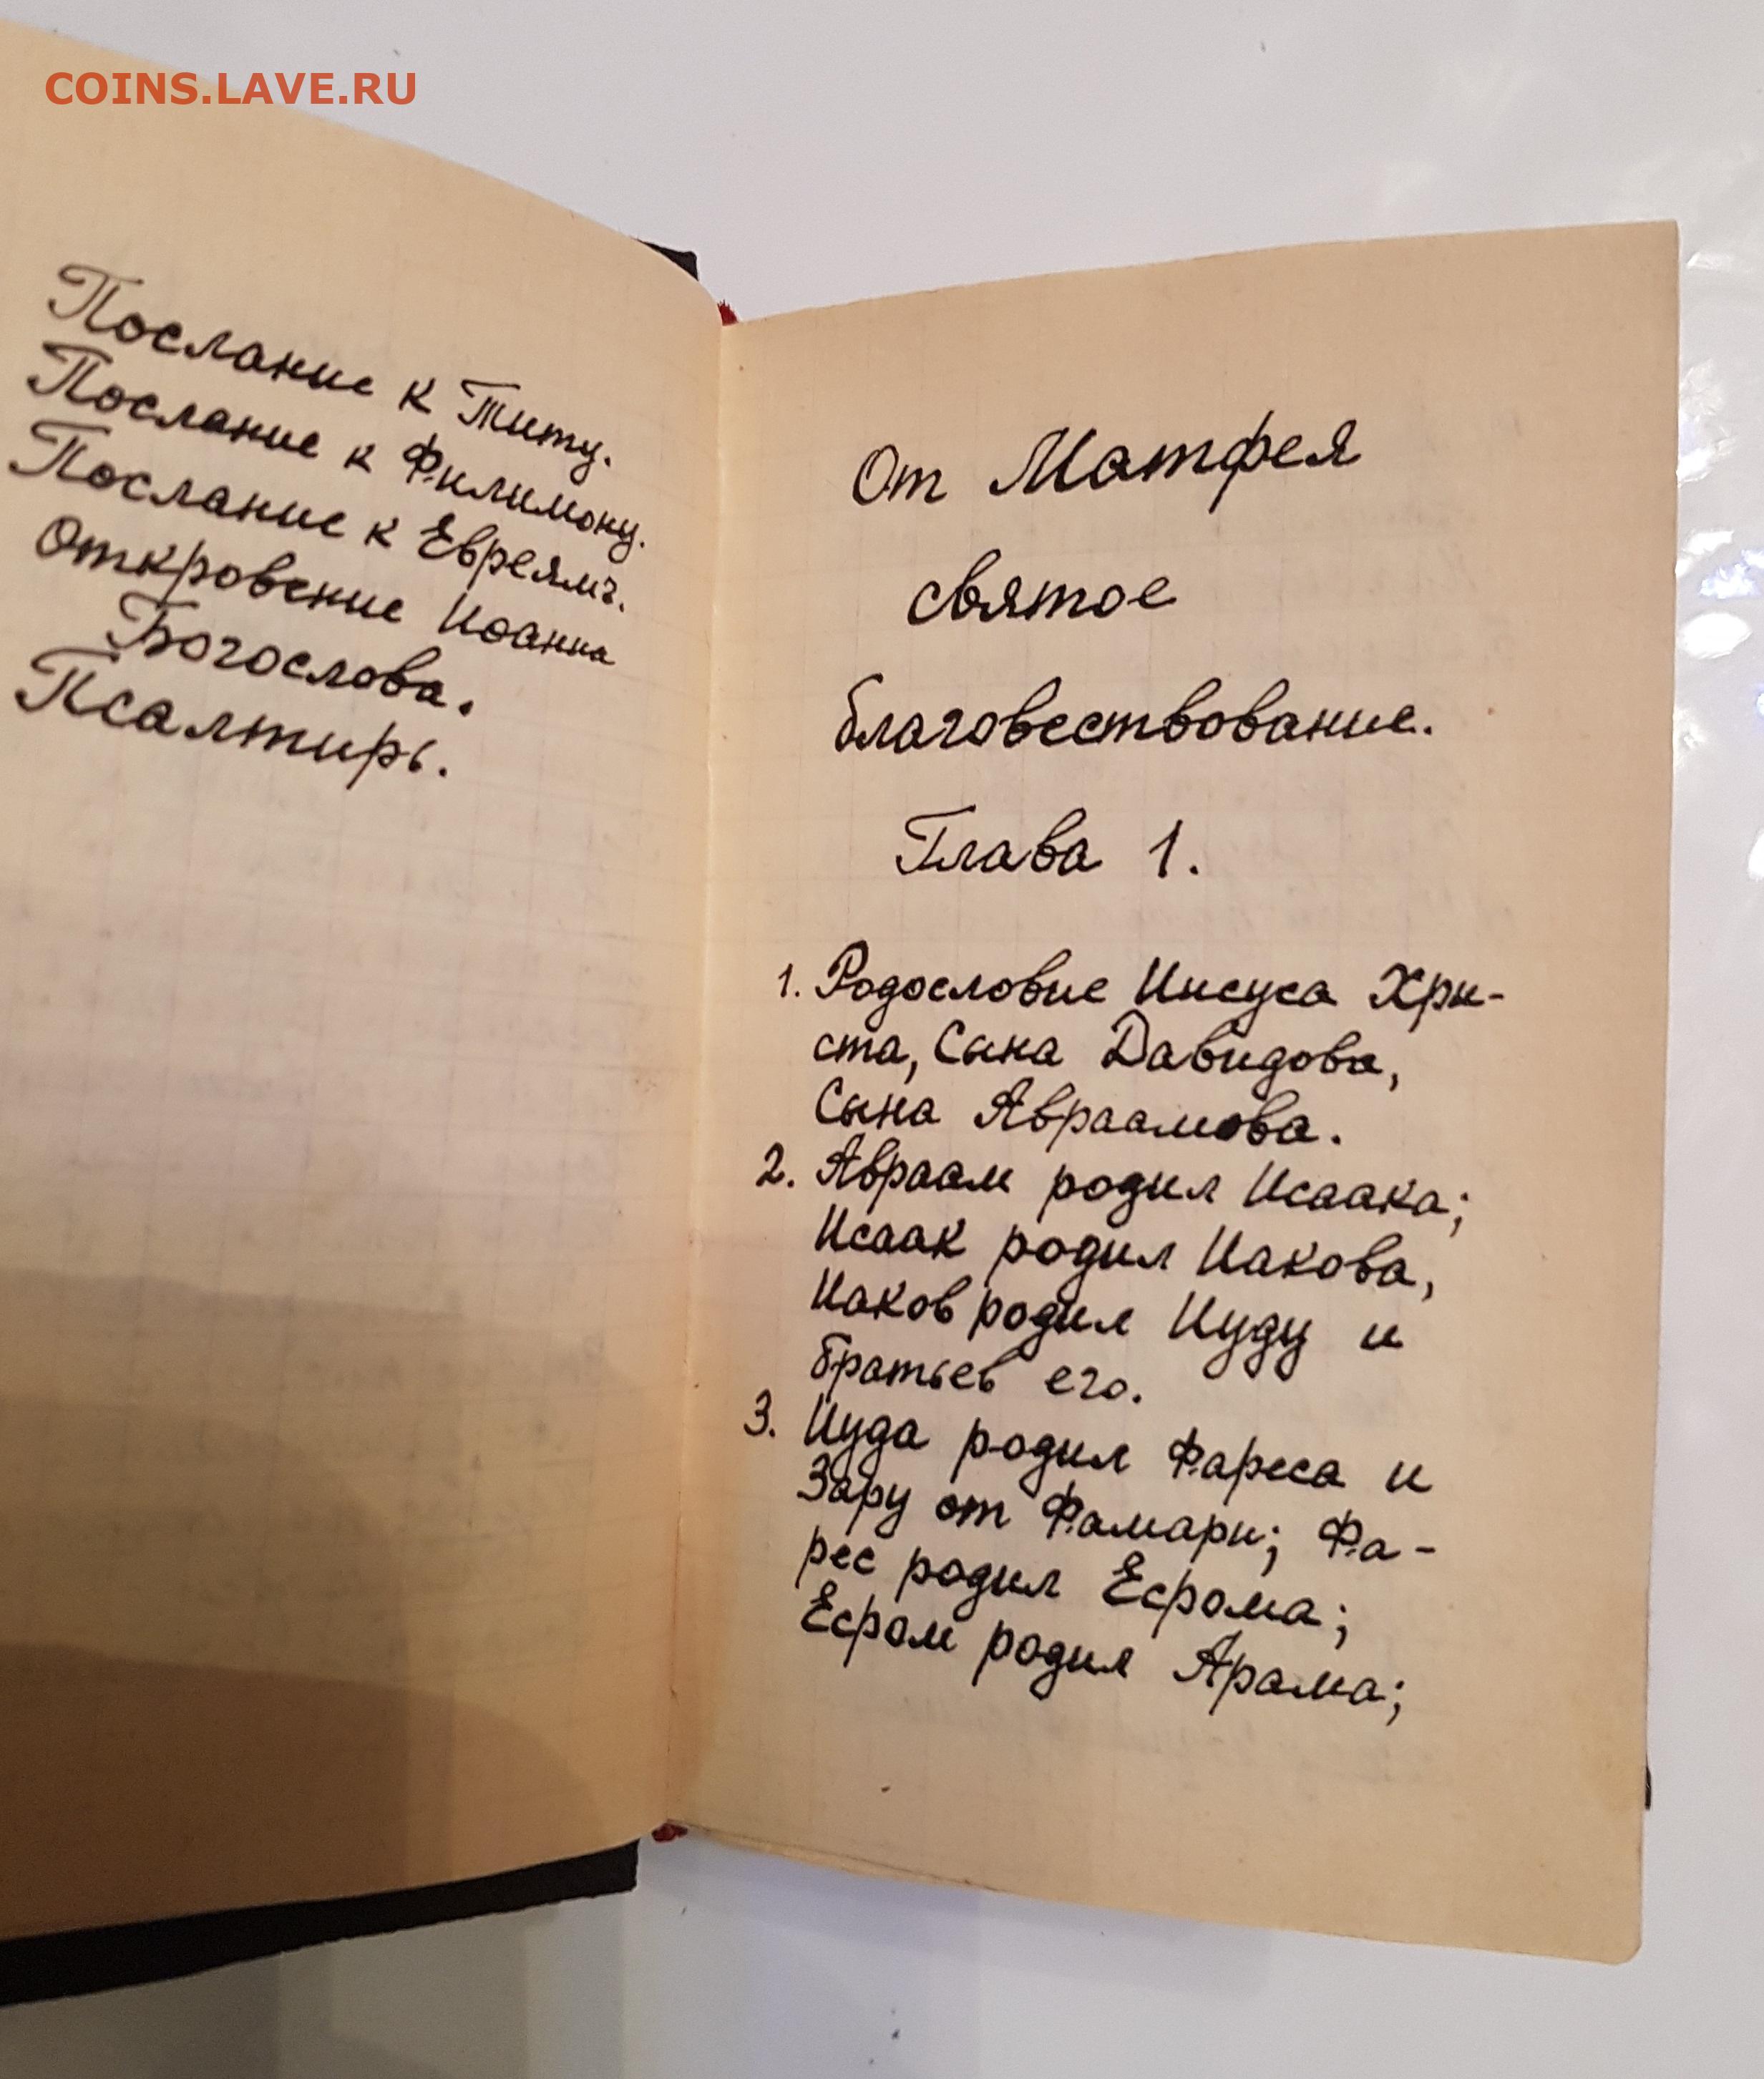 COINS.LAVE.RU
Послание к Титу.
Послание к Филимону.
Послание к Евреямъ.
Откровение Иоанна
Богослова.
Псалтирь.
От Матфея
святое
благовествование.
Глава 1.
1. Родословие Иисуса Хри-
ста, Сына Давидова,
Сына Авраамова.
2. Авраам родил Исаака;
Исаак родил Иакова,
Иаков родил Иуду и
братьев его.
3. Иуда родил Фареса и
Зару от Фамари; Фа-
рес родил Есрома;
Есром родил Арама;